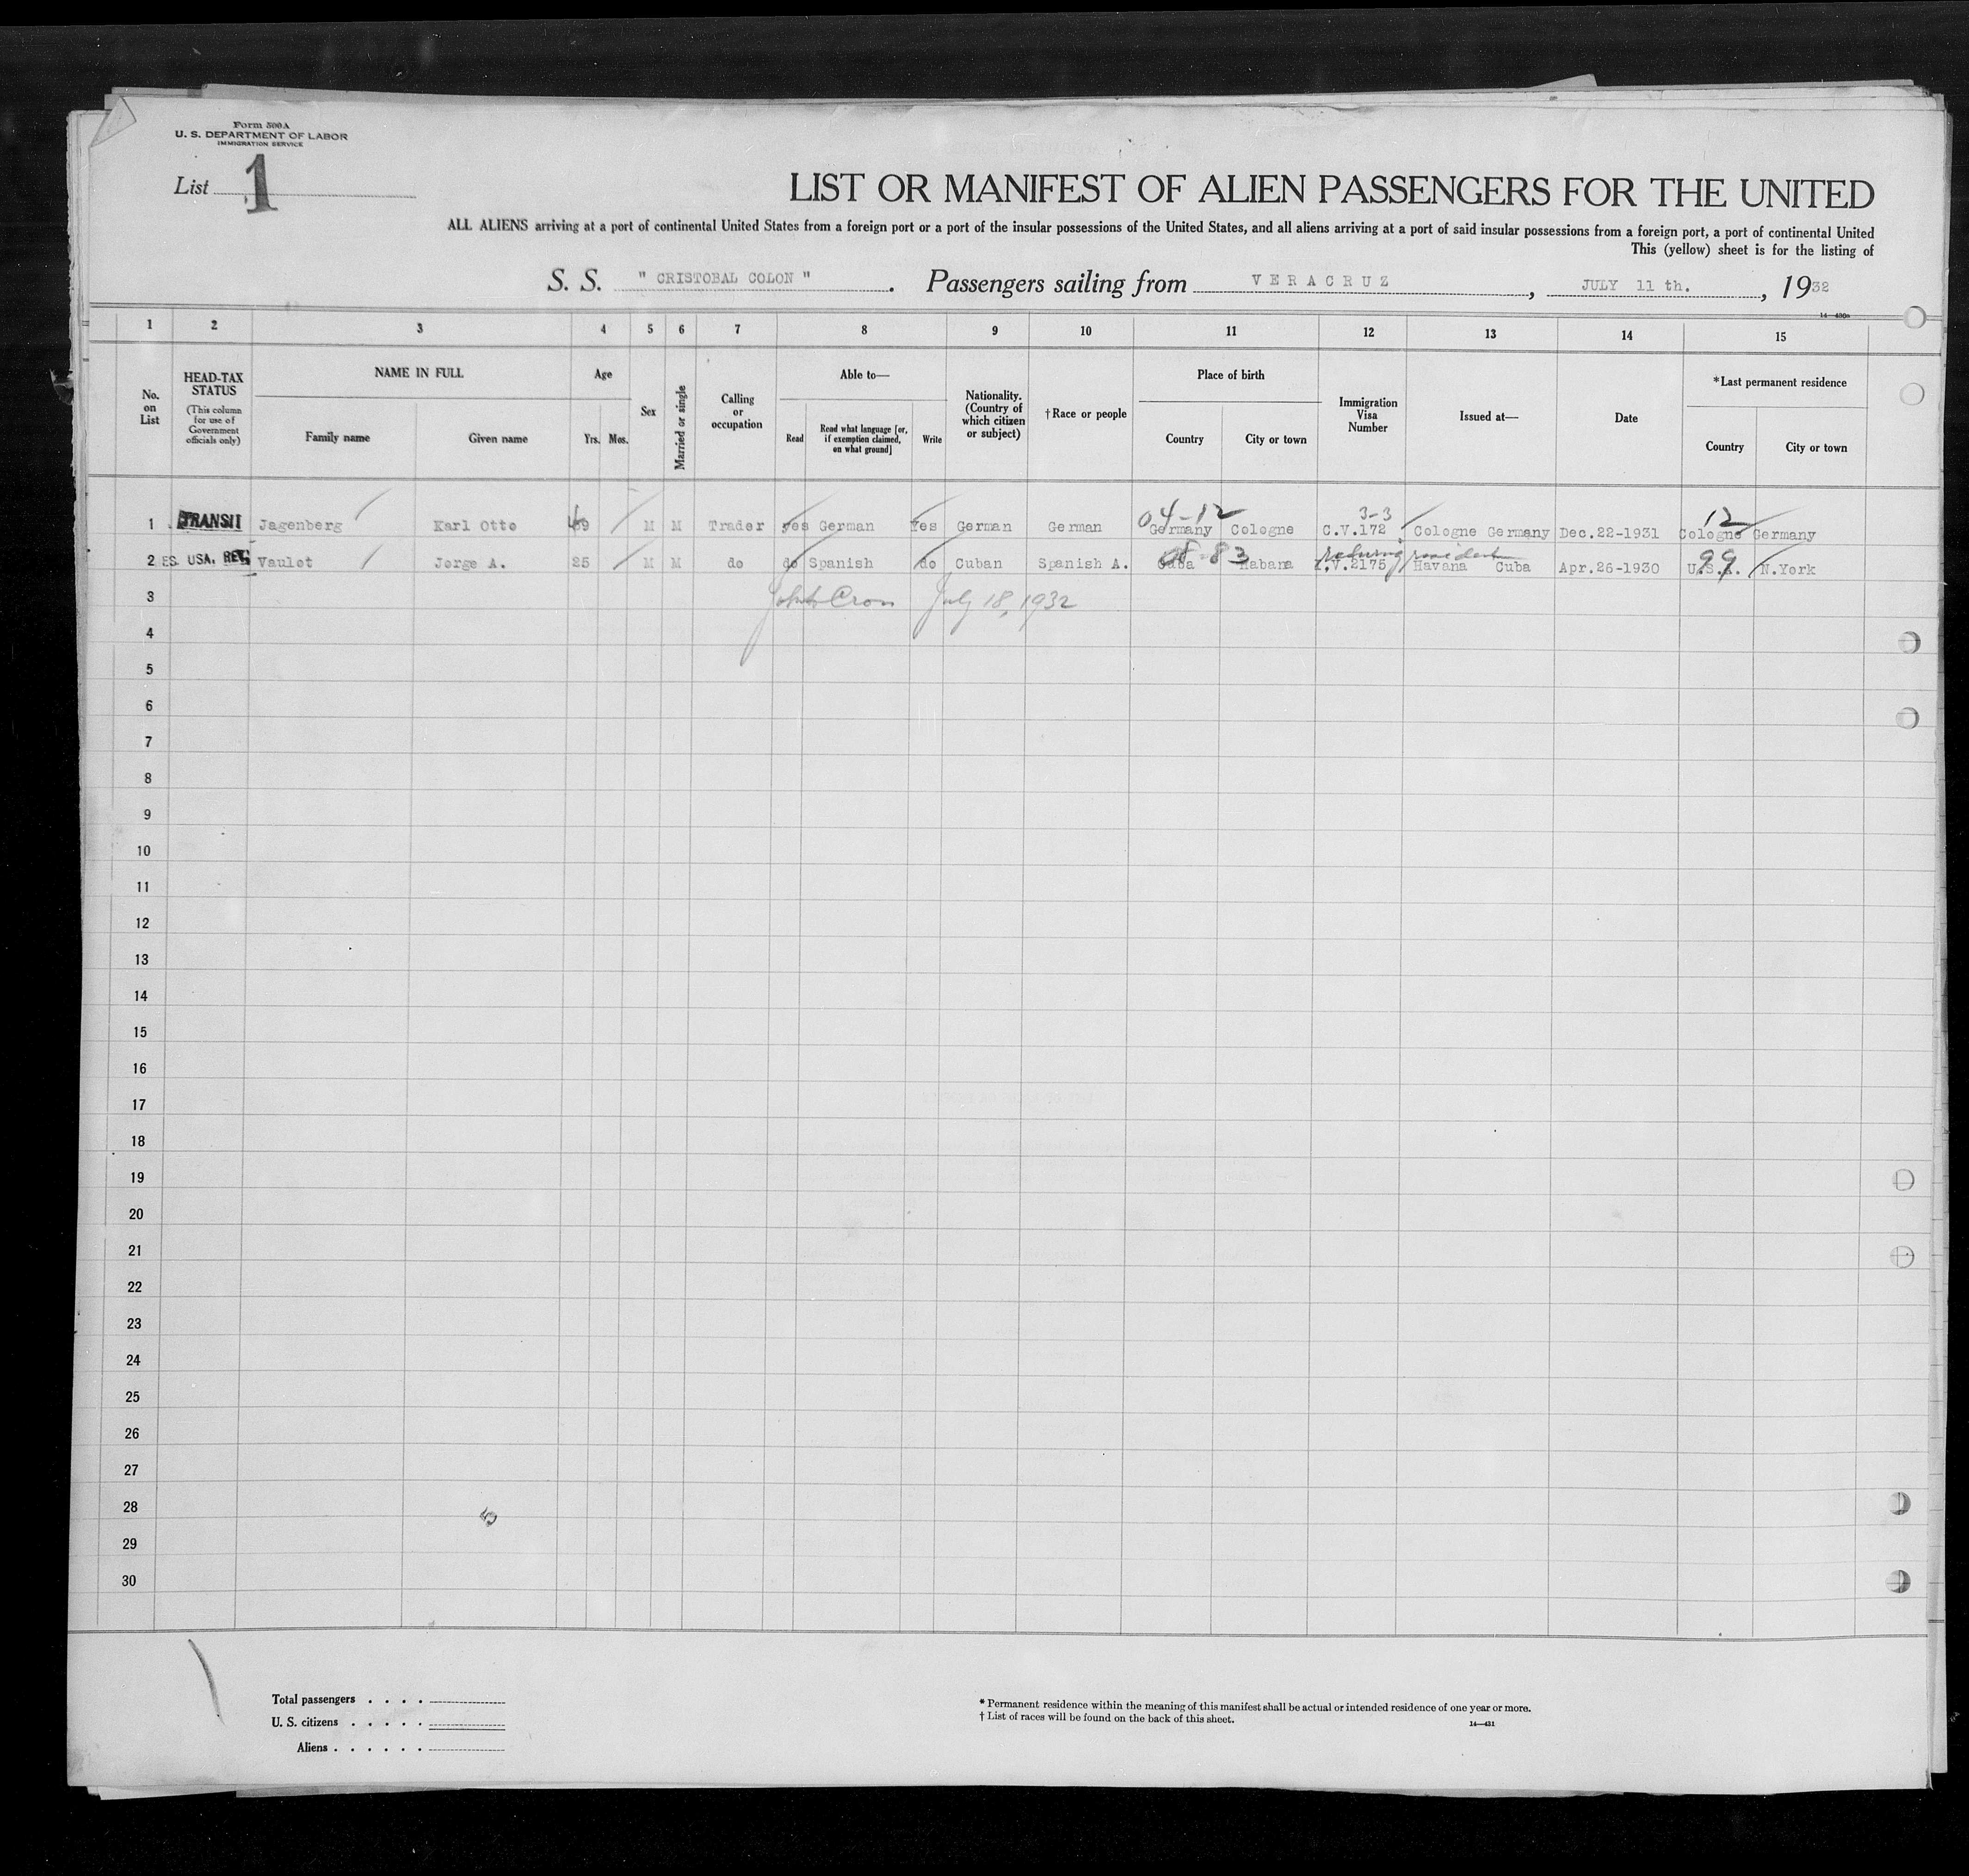 Form 500A
U. S. DEPARTMENT OF LABOR
IMMIGRATION SERVICE
List 1
LIST OR MANIFEST OF ALIEN PASSENGERS FOR THE UNITED
ALL ALIENS arriving at a port of continental United States from a foreign port or a port of the insular possessions of the United States, and all aliens arriving at a port of said insular possessions from a foreign port, a port of continental United
This (yellow) sheet is for the listing of
S. S. " CRISTOBAL COLON ". Passengers sailing from VERACRUZ, JULY 11 th., 1932
14—430a
1 2 3 4 5 6 7 8 9 10 11 12 13 14 15
No. on List
HEAD-TAX STATUS (This column for use of Government officials only)
NAME IN FULL
Family name Given name
Age
Yrs. Mos.
Sex
Married or single
Calling or occupation
Able to—
Read
Read what language [or, if exemption claimed, on what ground]
Write
Nationality. (Country of which citizen or subject)
†Race or people
Place of birth
Country City or town
Immigration Visa Number
Issued at—
Date
*Last permanent residence
Country City or town
04-12 3-3 12
1 TRANSIT Jagenberg Karl Otto 49 M M Trader yes German Yes German German Germany Cologne C.V.172 Cologne Germany Dec.22-1931 Cologne Germany
08-83 returning resident 99
2 ES. USA. Vaulot Jorge A. 25 M M do do Spanish do Cuban Spanish A. Cuba Habana I.V.2175 Havana Cuba Apr.26-1930 U.S.A. N.York
3 Cron July 18, 1932
4
5
6
7
8
9
10
11
12
13
14
15
16
17
18
19
20
21
22
23
24
25
26
27
28
29
30
5
Total passengers . . . .
U. S. citizens . . . . .
Aliens . . . . . .
* Permanent residence within the meaning of this manifest shall be actual or intended residence of one year or more.
† List of races will be found on the back of this sheet.
14—431